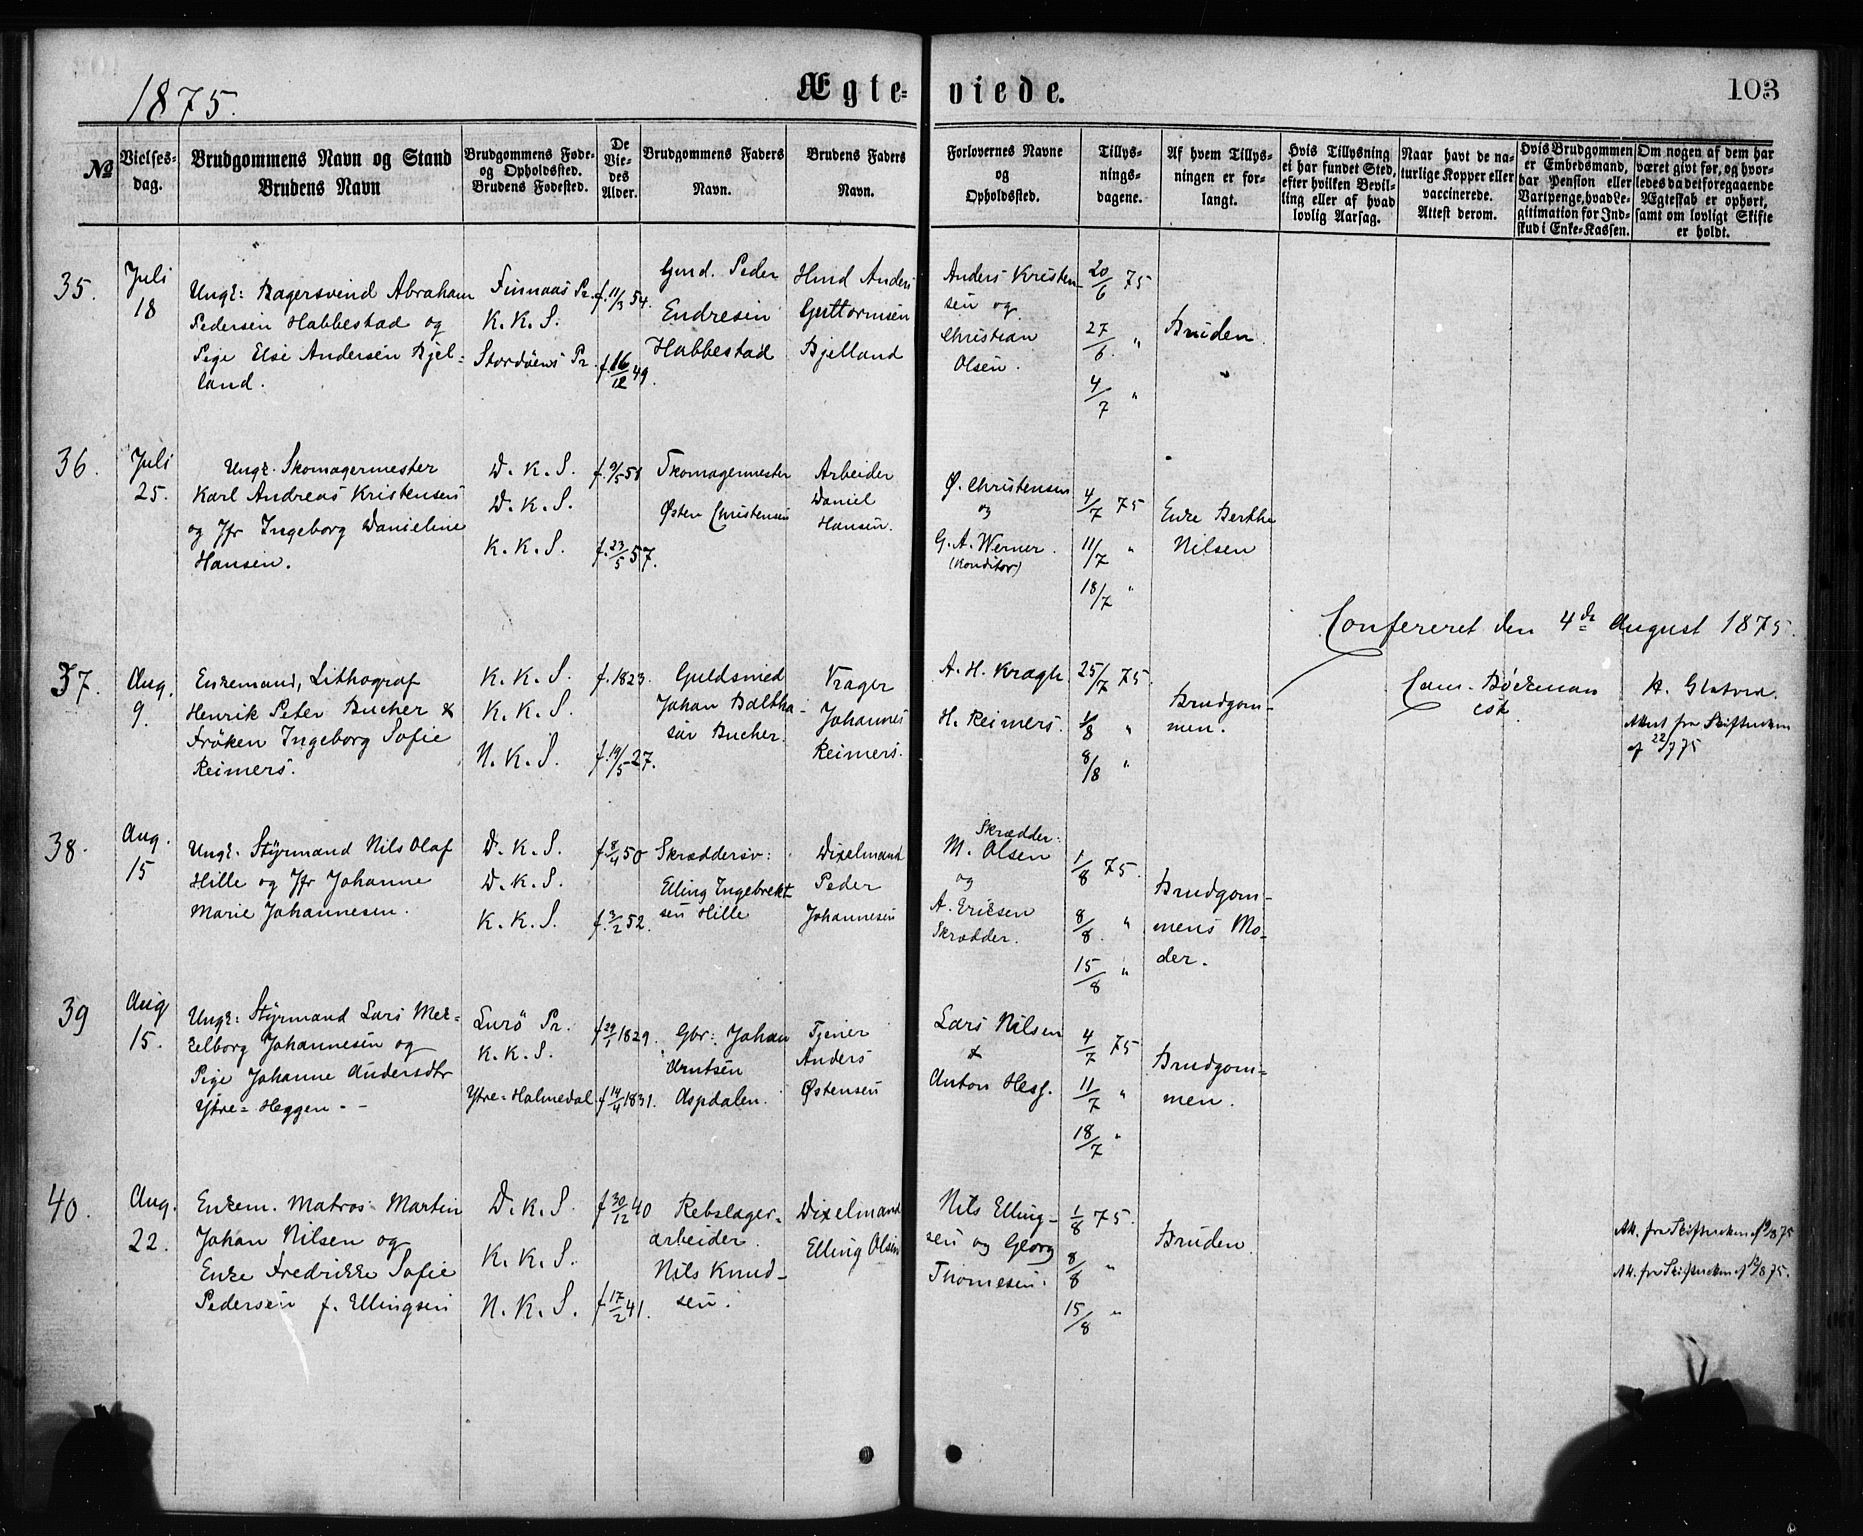 1875.
Ægte-
viede.
103
No
Vielses-
dag.
Brudgommens Navn og Stand
Brudens Navn
Brudgommens Føde-
og Opholdssted.
Brudens Fødested.
De
Vie-
des
Alder.
Brudgommens Faders
Navn.
Brudens Faders
Navn.
Forlovernes Navne
og
Opholdssted.
Tillys-
nings-
dagene.
Af hvem Tillys-
ningen er for-
langt.
Hvis Tillysning
ei har fundet Sted,
efter hvilken Bevil-
ling eller af hvad
lovlig Aarsag.
Naar havt de na-
turlige Kopper eller
vaccinerede.
Attest derom.
Hvis Brudgommen
er Embedsmand,
har Pension eller
Vartpenge, hvad Le-
gitimation for Ind-
skud i Enke-Kassen.
Om nogen af dem har
været givt før, og hvor-
ledes da det foregaaende
Ægteskab er ophørt,
samt om lovligt Skifte
er holdt.
35.
Juli
18
Ungk: Bagersvend Abraham
Pedersen Habbestad og
Pige Else Andersen Bjel-
land.
Finnaas Pr.
K. K. S.
Stordöens Pr.
f. 11/3 54.
f. 16/12 49.
Gmd. Peder
Endresen
Habbestad
Hmd Anders
Guttormsen
Bjelland
Anders Kristen-
sen og
Christian
Olsen.
20/6 75
27/6 "
4/7 "
Bruden.
36.
Juli
25.
Ungk. Skomagermester
Karl Andreas Kristensen
og Jfr Ingeborg Danieline
Hansen.
D. K. S.
D. K. S.
K. K. S.
f. 9/5 51
f. 23/5 57.
Skomagermester
Østen Christensen
Arbeider
Daniel
Hansen.
Ø. Christensen
og
G. A. Werner.
(Konditor)
4/7 75
11/7 "
18/7 "
Enke Berthe
Nilsen
Confereret den 4de August 1875.
37.
Aug.
9.
Enkemand, Lithograf
Henrik Peter Bucher &
Frøken Ingeborg Sofie
Reimers.
K. K. S.
K. K. S.
N. K. S.
f. 1823.
f. 19/5 27.
Guldsmed
Johan Baltha-
sar Bucher.
Vrager
Johannes
Reimers.
A. H. Kragh
H. Reimers.
25/7 75.
1/8 "
8/8 "
Brudgom-
men.
Cam. Böckman
csk.
Attest fra Skifteretten
af 22/7 75
38.
Aug.
15
Ungk. Styrmand Nils Olaf
Hille og Jfr Johanne
Marie Johannesen.
D. K. S.
D. K. S.
K. K. S.
f. 8/4 50
f. 3/2 52.
Skræddersv:
Elling Ingebrekt-
sen Hille
Dixelmand
Peder
Johannesen
Skrædder.
M. Olsen
og
A. Ericsen
Skrædder.
1/8 75.
8/8. "
15/8 "
Brudgom-
mens Mo-
der.
39
Aug
15.
Ungk: Styrmand Lars Mek-
kelborg Johannesen og
Pige Johanne Andersdtr
Ytre-Heggen. -
Lurö Pr.
K. K. S.
Ytre-Holmedal
f 29/1 1829.
f 14/4 1831.
Gbr: Johan
Arntsen
Aspdalen.
Tjener
Anders
Østensen
Lars Nilsen
&
Anton Hesf.
4/7 75
11/7 "
18/7 "
Brudgom-
men.
40.
Aug.
22.
Enkem. Matros Martin
Johan Nilsen og
Enke Fredrikke Sofie
Pedersen f. Ellingsen
D. K. S.
K. K. S.
N. K. S.
f 30/12 40
f 17/2 41.
Rebslager-
arbeider.
Nils Knud-
sen.
Dixelmand
Elling Olsen
Nils Elling-
sen og Georg
Thomesen.
1/8 75.
8/8 "
15/8 "
Bruden.
Att. fra Skifteretten af
Att. fra Skifteretten af